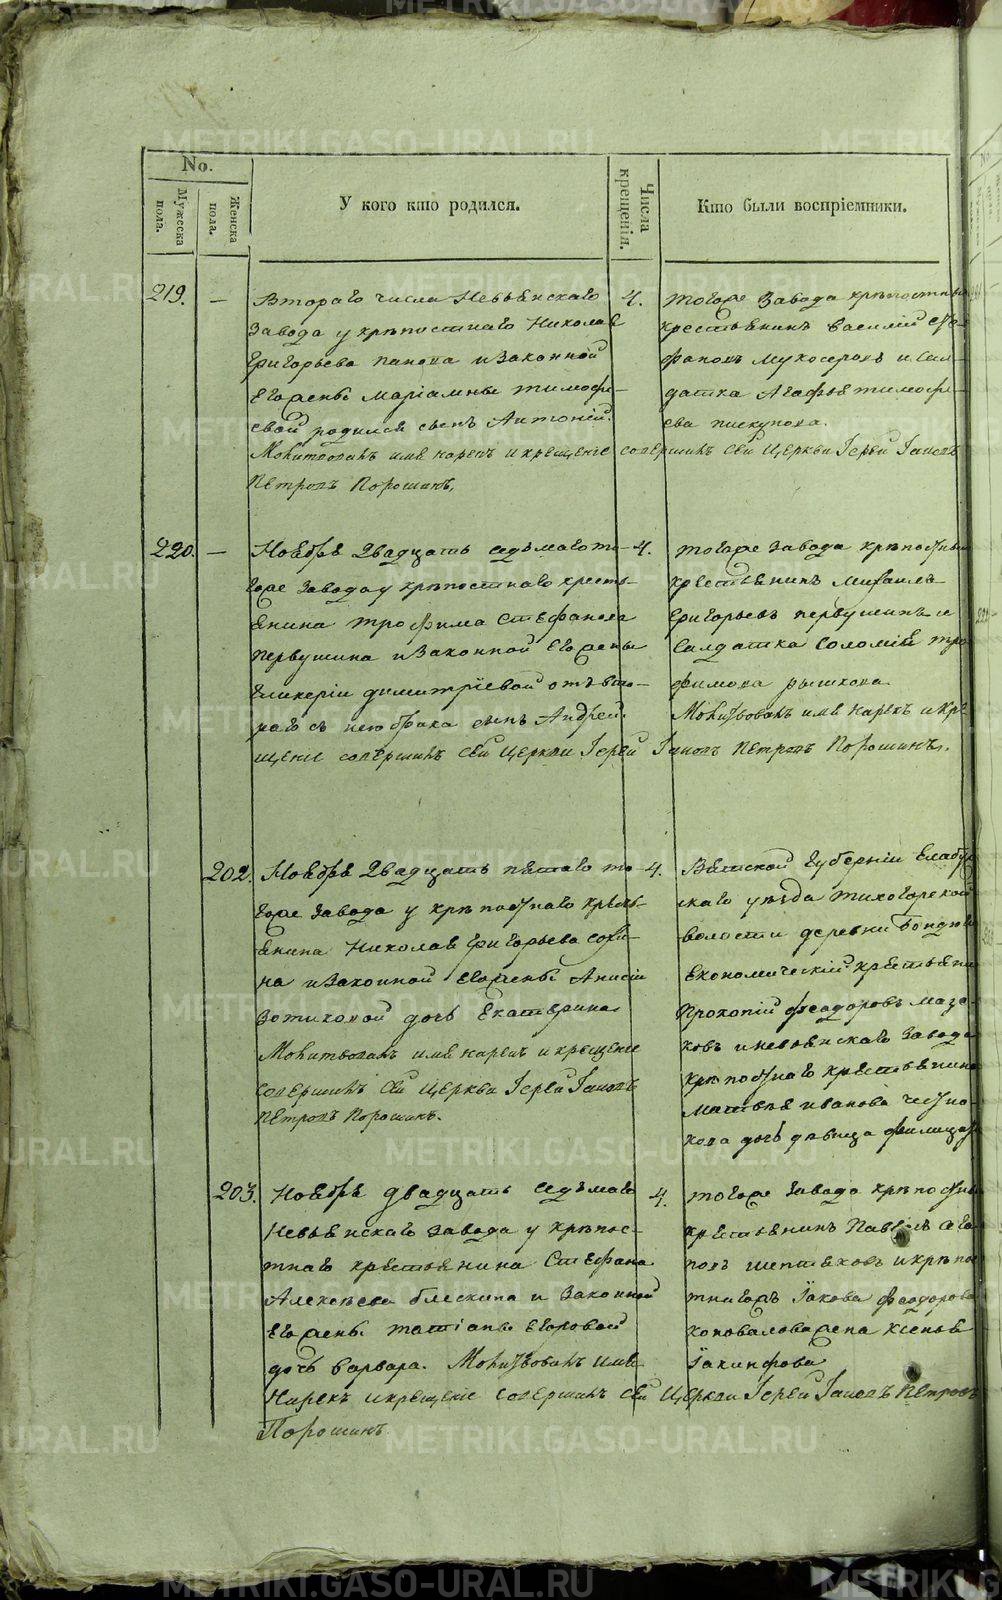 No.
Мужеска пола.
Женска пола.
У кого кто родился.
Числа крещенія.
Кто были воспріемники.
219. — Втораго числа Невьянскаго
завода у крѣпостнаго Николая
Григорьева Панова и законной
его жены Маріамны Тимофе-
евой родился сынъ Антоній.
Молитвовалъ имя нарекъ и крещеніе совершилъ сей Церкви Іерей Іаковъ
Петровъ Порошинъ.
4. тогоже завода крѣпостный
крестьянинъ Василій Сте-
фановъ Мухосеровъ и сол-
датка Агафья Тимофе-
ева
220. — Ноября двадцать седьмаго то-
гоже завода у крѣпостнаго кресть-
янина Трофима Стефанова
Первушина и законной его жены
Гликеріи Димитріевой отъ вто-
раго съ нею брака сынъ Андрей.
4. тогоже завода крѣпостный
крестьянинъ Михаилъ
Григорьевъ Первушинъ и
солдатка Соломія Тро-
фимова Рышкова
Молитвовалъ имя нарекъ и кре-
щеніе совершилъ сей Церкви Іерей Іаковъ Петровъ Порошинъ.
202. Ноября двадцать пятаго то-
гоже завода у крѣпостнаго кресть-
янина Николая Григорьева
на и законной его жены Анисіи
Зотиковой дочь Екатерина
Молитвовалъ имя нарекъ и крещеніе
совершилъ сей Церкви Іерей Іаковъ
Петровъ Порошинъ.
4. Вятской губерніи Елабуж-
скаго уѣзда Тихогорской
волости деревни
економическій крестьянинъ
Прокопій Феодоровъ Маза-
ковъ и Невьянскаго завода
крѣпостнаго крестьянина
Матвѣя Иванова
дочь дѣвица
203. Ноября двадцать седьмаго
Невьянскаго завода у крѣпос-
тнаго крестьянина Стефана
Алексѣева Блескина и законной
его жены Татіаны Егоровой
дочь Варвара. Молитвовалъ имя
нарекъ и крещеніе совершилъ сей Церкви Іерей Іаковъ Петровъ
Порошинъ
4. тогоже завода крѣпостный
крестьянинъ Павелъ
Шептяковъ и крѣпос-
тнагожъ Іакова Феодорова
Коновалова жена Ксенія
Іакинфова
METRIKI.GASO-URAL.RU